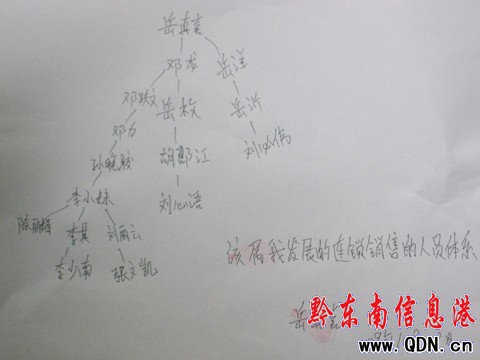 岳真言
邓龙 岳洋
邓牧文 岳枚 岳沂
邓力
孙晓骏 胡郎江 刘必伟
李小妹 刘心语
陈丽梅 李其 刘丽云
李少南 张文凯
该属我发展的连锁销售的人员体系
岳
黔东南信息港
www.QDN.cn